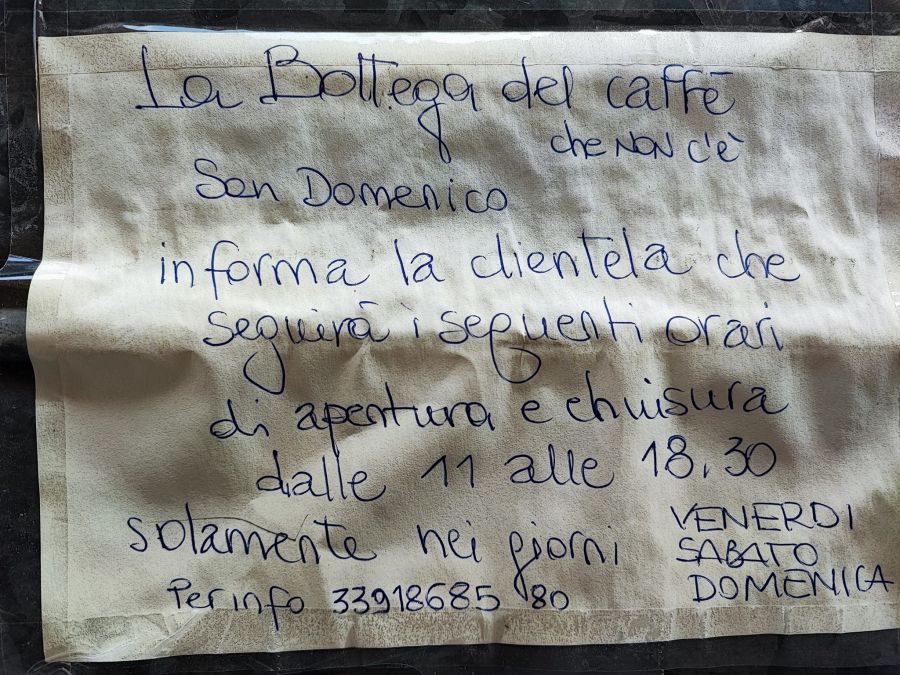 La Bottega del caffè
che NON c'è
San Domenico
informa la clientela che
seguirà i seguenti orari
di apertura e chiusura
dalle 11 alle 18.30
solamente nei giorni VENERDI
SABATO
DOMENICA
Per info 33918685 80